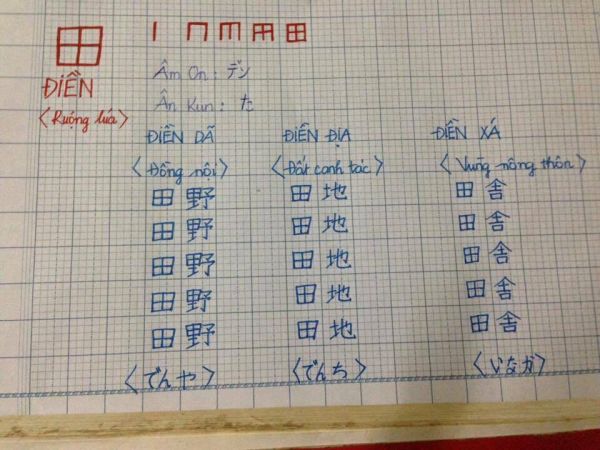 田
ĐIỀN
<Ruộng lúa>
Âm On : デン
Ân Kun : た
ĐIỀN DÃ ĐIỀN ĐỊA ĐIỀN XÁ
<Đồng nội> <Đất canh tác> <Vùng nông thôn>
田野 田地 田舎
田野 田地 田舎
田野 田地 田舎
田野 田地 田舎
田野 田地 田舎
<でんや> <でんち> <いなか>